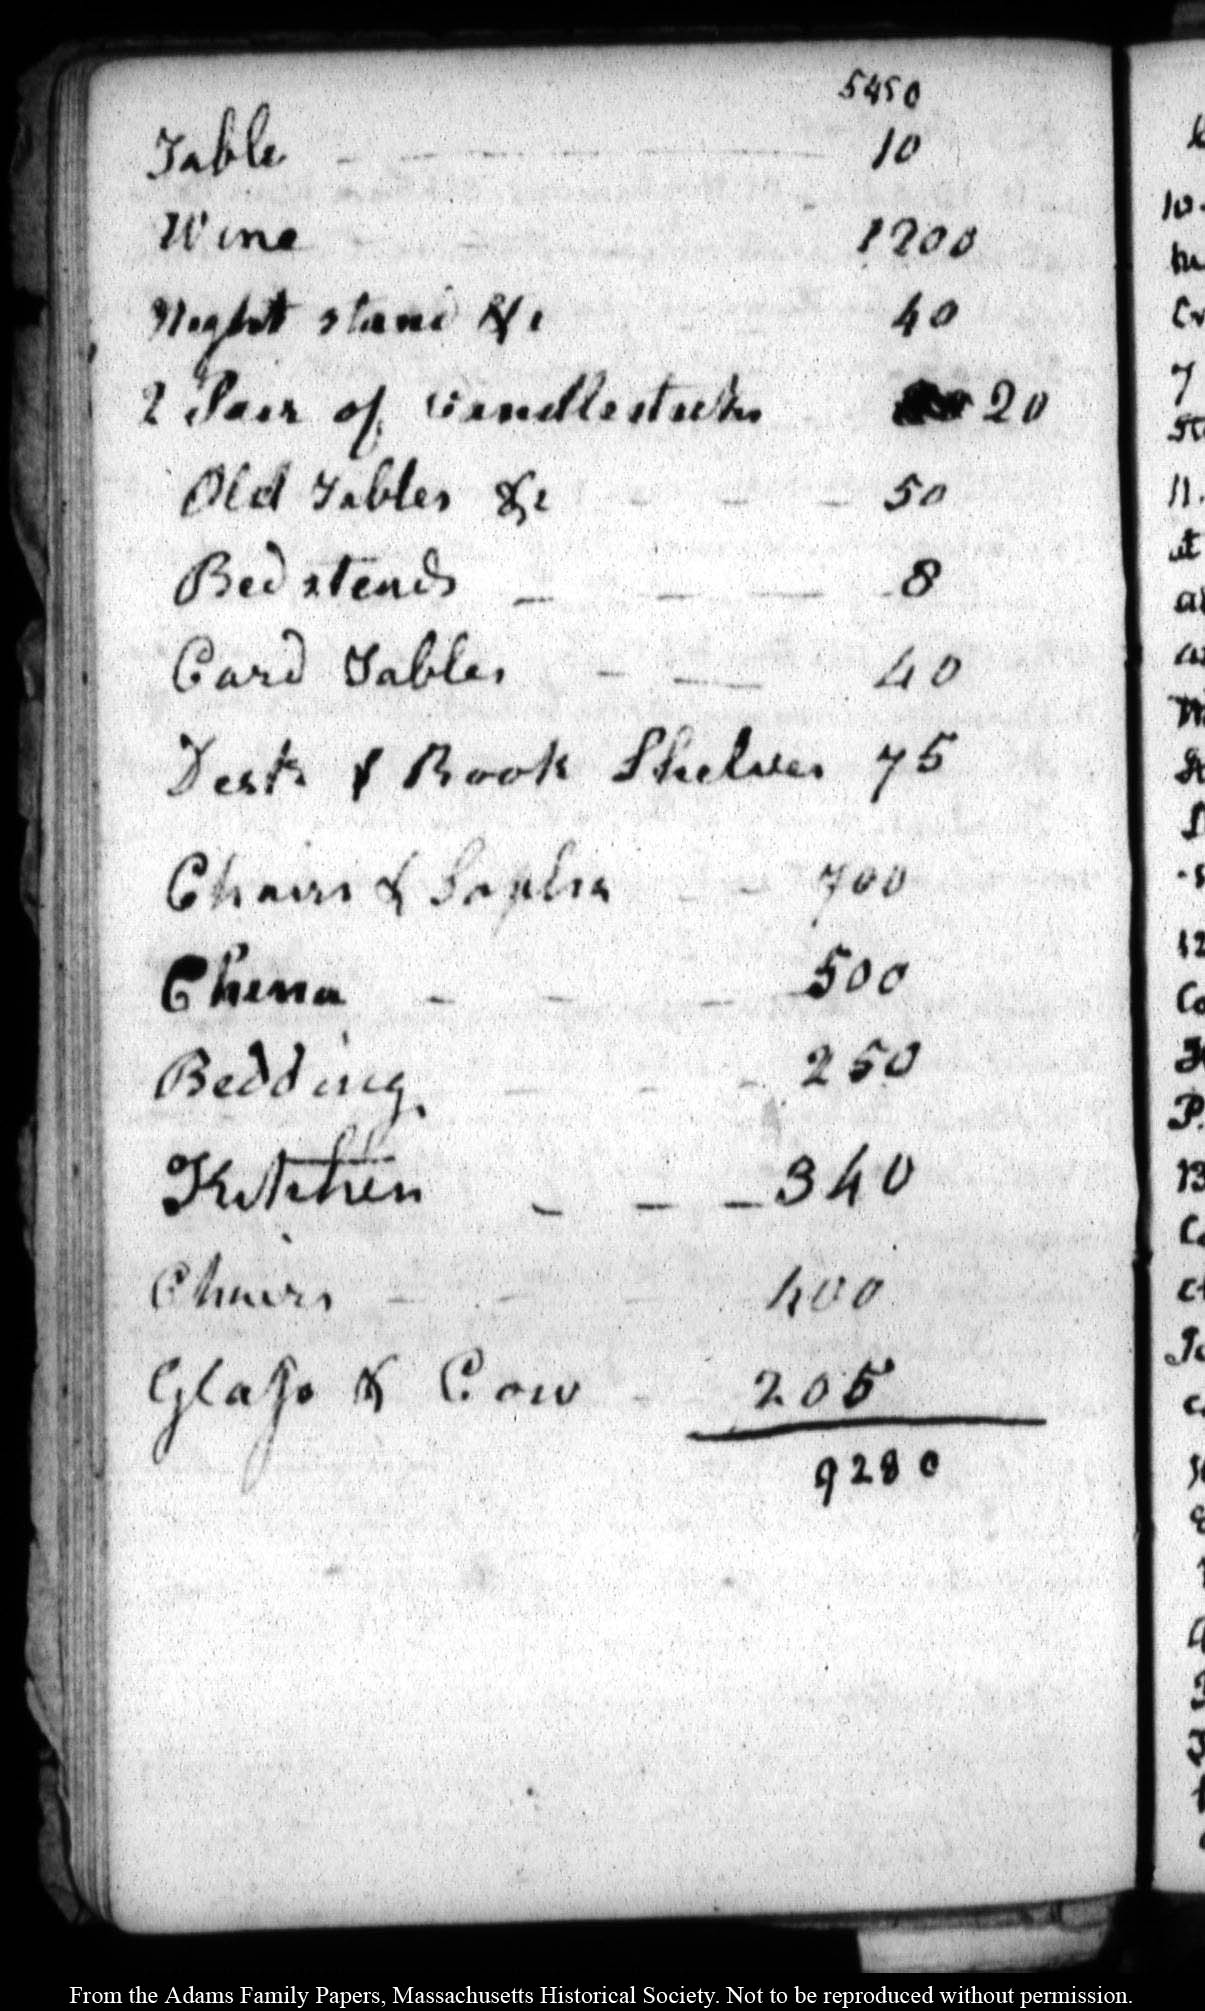 5450
Table 10
Wine 1200
Night stand &c 40
2 Pair of Candlesticks 20
Old Tables &c 50
Bedsteads 8
Card Tables 40
Desk & Book Shelves 75
Chairs & Sopha 700
Chena 500
Bedding 250
Kitchen 340
Chairs 400
Glass & Cow 205
9280
From the Adams Family Papers, Massachusetts Historical Society. Not to be reproduced without permission.